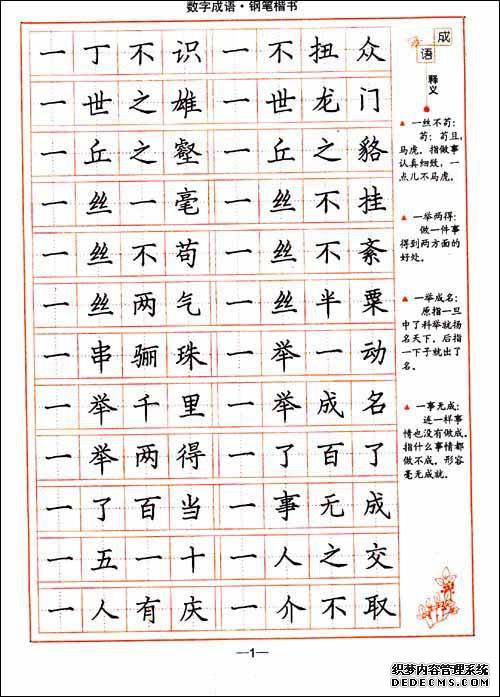 数字成语·钢笔楷书
一丁不识一不扭众
一世之雄一世龙门
一丘之壑一丘之貉
一丝一毫一丝不挂
一丝不苟一丝不紊
一丝两气一丝半粟
一串骊珠一举一动
一举千里一举成名
一举两得一了百了
一了百当一事无成
一五一十一人之交
一人有庆一介不取
成语
释义
▲ 一丝不苟:
苟:苟且,
马虎。指做事
认真细致,一
点儿不马虎。
▲ 一举两得:
做一件事
得到两方面的
好处。
▲ 一举成名:
原指一旦
中了科举就扬
名天下,后指
一下子就出了
名。
▲ 一事无成:
连一样事
情也没有做成。
指什么事情都
做不成,形容
毫无成就。
—1—
织梦内容管理系统
DEDECMS.COM